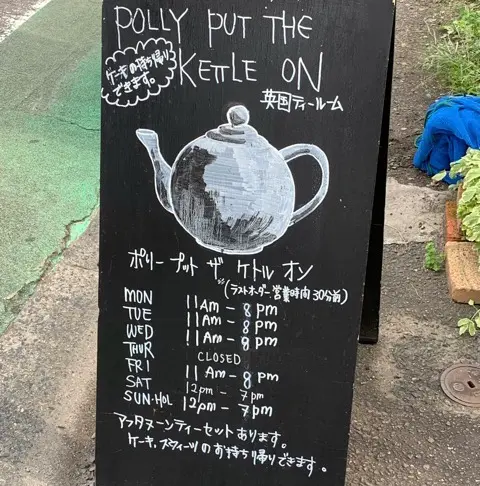 POLLY PUT THE
KETTLE ON
ケーキの持ち帰り
できます。
英国ティールーム
ポリー プット ザ ケトル オン
(ラストオーダー営業時間30分前)
MON 11Am - 8 pm
TUE 11Am - 8 pm
WED 11Am - 8 pm
THUR CLOSED
FRI 11 Am - 8 pm
SAT 12pm - 7pm
SUN·HOL 12pm - 7pm
アフタヌーンティーセットあります。
ケーキ、スウィーツのお持ち帰りできます。